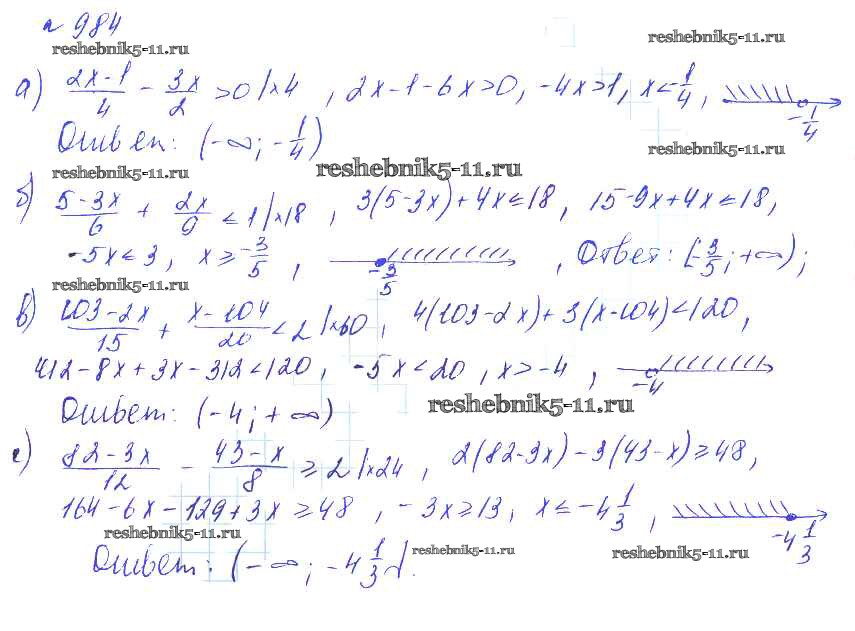 № 984
reshebnik5-11.ru reshebnik5-11.ru
а) (2x-1)/4 - 3x/2 > 0 |×4 , 2x-1-6x>0, -4x>1, x<-1/4, -1/4
Ответ: (-∞; -1/4)
reshebnik5-11.ru
reshebnik5-11.ru
reshebnik5-11.ru
б) (5-3x)/6 + 2x/9 ≤ 1 |×18 , 3(5-3x)+4x≤18, 15-9x+4x≤18,
-5x≤3, x≥-3/5 , -3/5 , Ответ: [-3/5; +∞);
reshebnik5-11.ru
в) (103-2x)/15 + (x-104)/20 < 2 |×60 , 4(103-2x)+3(x-104)<120,
412-8x+3x-312<120, -5x<20, x>-4 , -4
Ответ: (-4; +∞)
reshebnik5-11.ru
г) (82-3x)/12 - (43-x)/8 ≥ 2 |×24 , 2(82-3x)-3(43-x)≥48,
164-6x-129+3x≥48 , -3x≥13, x≤-4 1/3 , -4 1/3
reshebnik5-11.ru
Ответ: (-∞; -4 1/3].
reshebnik5-11.ru reshebnik5-11.ru